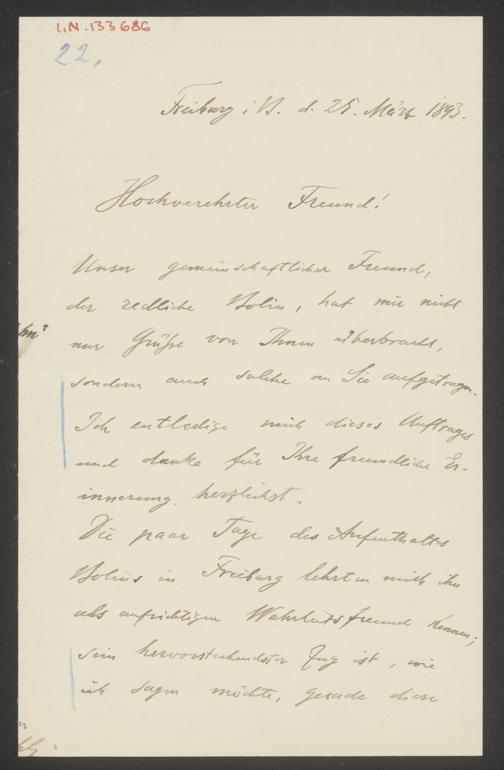 I.N. 133686
22.
Freiburg i. B. d. 25. März 1893.
Hochverehrter Freund!
Unser gemeinschaftlicher Freund,
der redliche Bolin, hat mir nicht
nur Grüße von Ihnen überbracht,
sondern auch solche an Sie aufgetragen.
Ich entledige mich dieses Auftrages
und danke für Ihre freundliche Er-
innerung herzlichst.
Die paar Tage des Aufenthaltes
Bolins in Freiburg lehrten mich ihn
als aufrichtigen Wahrheitsfreund kennen;
sein hervorstechendster Zug ist, wie
ich sagen möchte, gerade diese